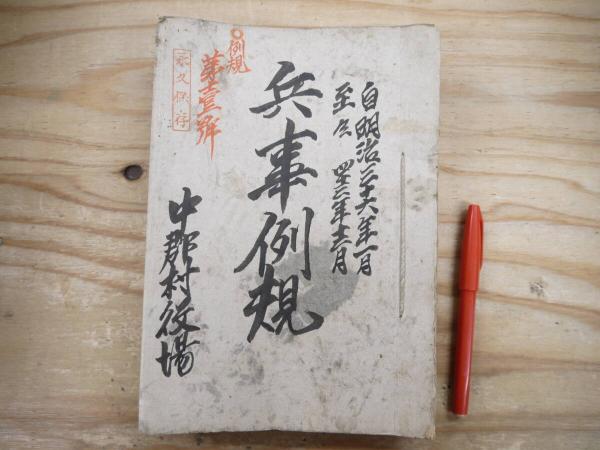 自明治三十六年一月
至仝 四十三年十二月
兵事例規
中郡村役場
例規
第壹号
永久保存